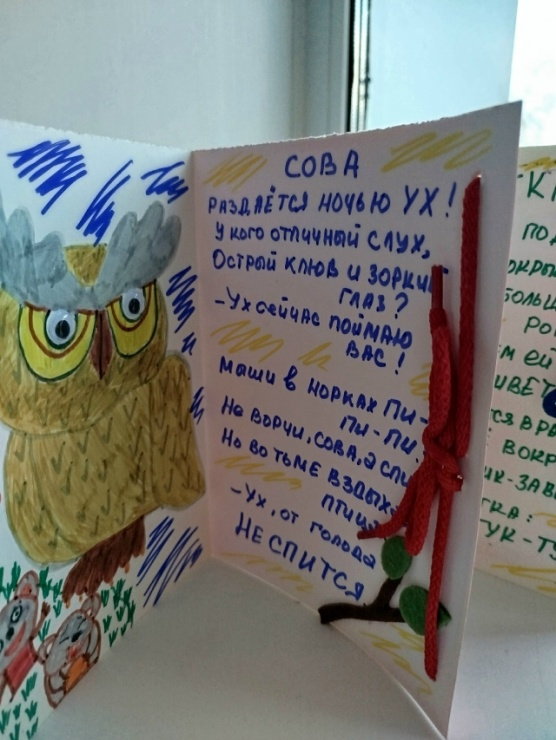 СОВА
РАЗДАЁТСЯ НОЧЬЮ УХ!
У КОГО ОТЛИЧНЫЙ СЛУХ,
ОСТРЫЙ КЛЮВ И ЗОРКИЙ
ГЛАЗ?
-УХ СЕЙЧАС ПОЙМАЮ
ВАС!
МЫШИ В НОРКАХ ПИ-
ПИ-ПИ.
НЕ ВОРЧИ, СОВА, А СПИ
НО ВО ТЬМЕ ВЗДЫХ
ПТИЦ
-УХ, ОТ ГОЛОДА
НЕ СПИТСЯ
ПО
ОКРЫ
БОЛЬШ
РО
М ЕЙ
ЦВЕТ
СЯ ВРА
ВОКР
ИК-ЗАВ
ТКА:
ТУК-Т